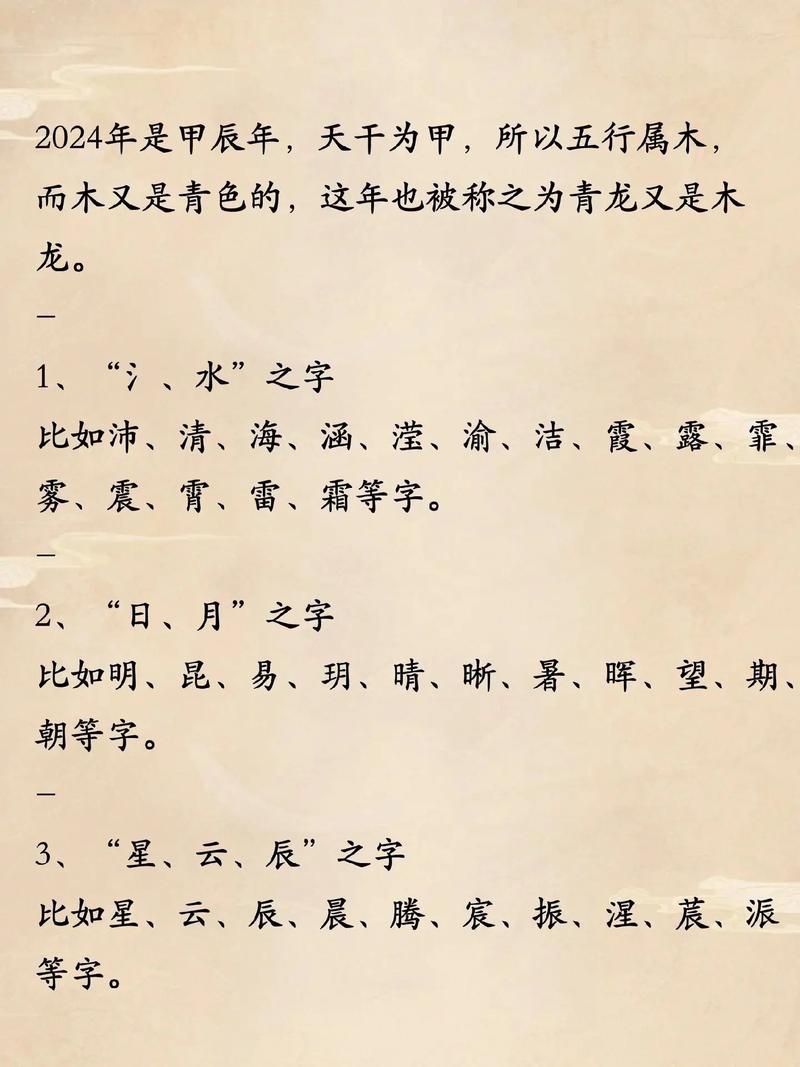 2024年是甲辰年，天干为甲，所以五行属木，
而木又是青色的，这年也被称之为青龙又是木
龙。
–
1、“氵、水”之字
比如沛、清、海、涵、滢、渝、洁、霞、露、霏、
雾、震、霄、雷、霜等字。
–
2、“日、月”之字
比如明、昆、易、玥、晴、晰、暑、晖、望、期、
朝等字。
–
3、“星、云、辰”之字
比如星、云、辰、晨、腾、宸、振、涅、莀、派
等字。